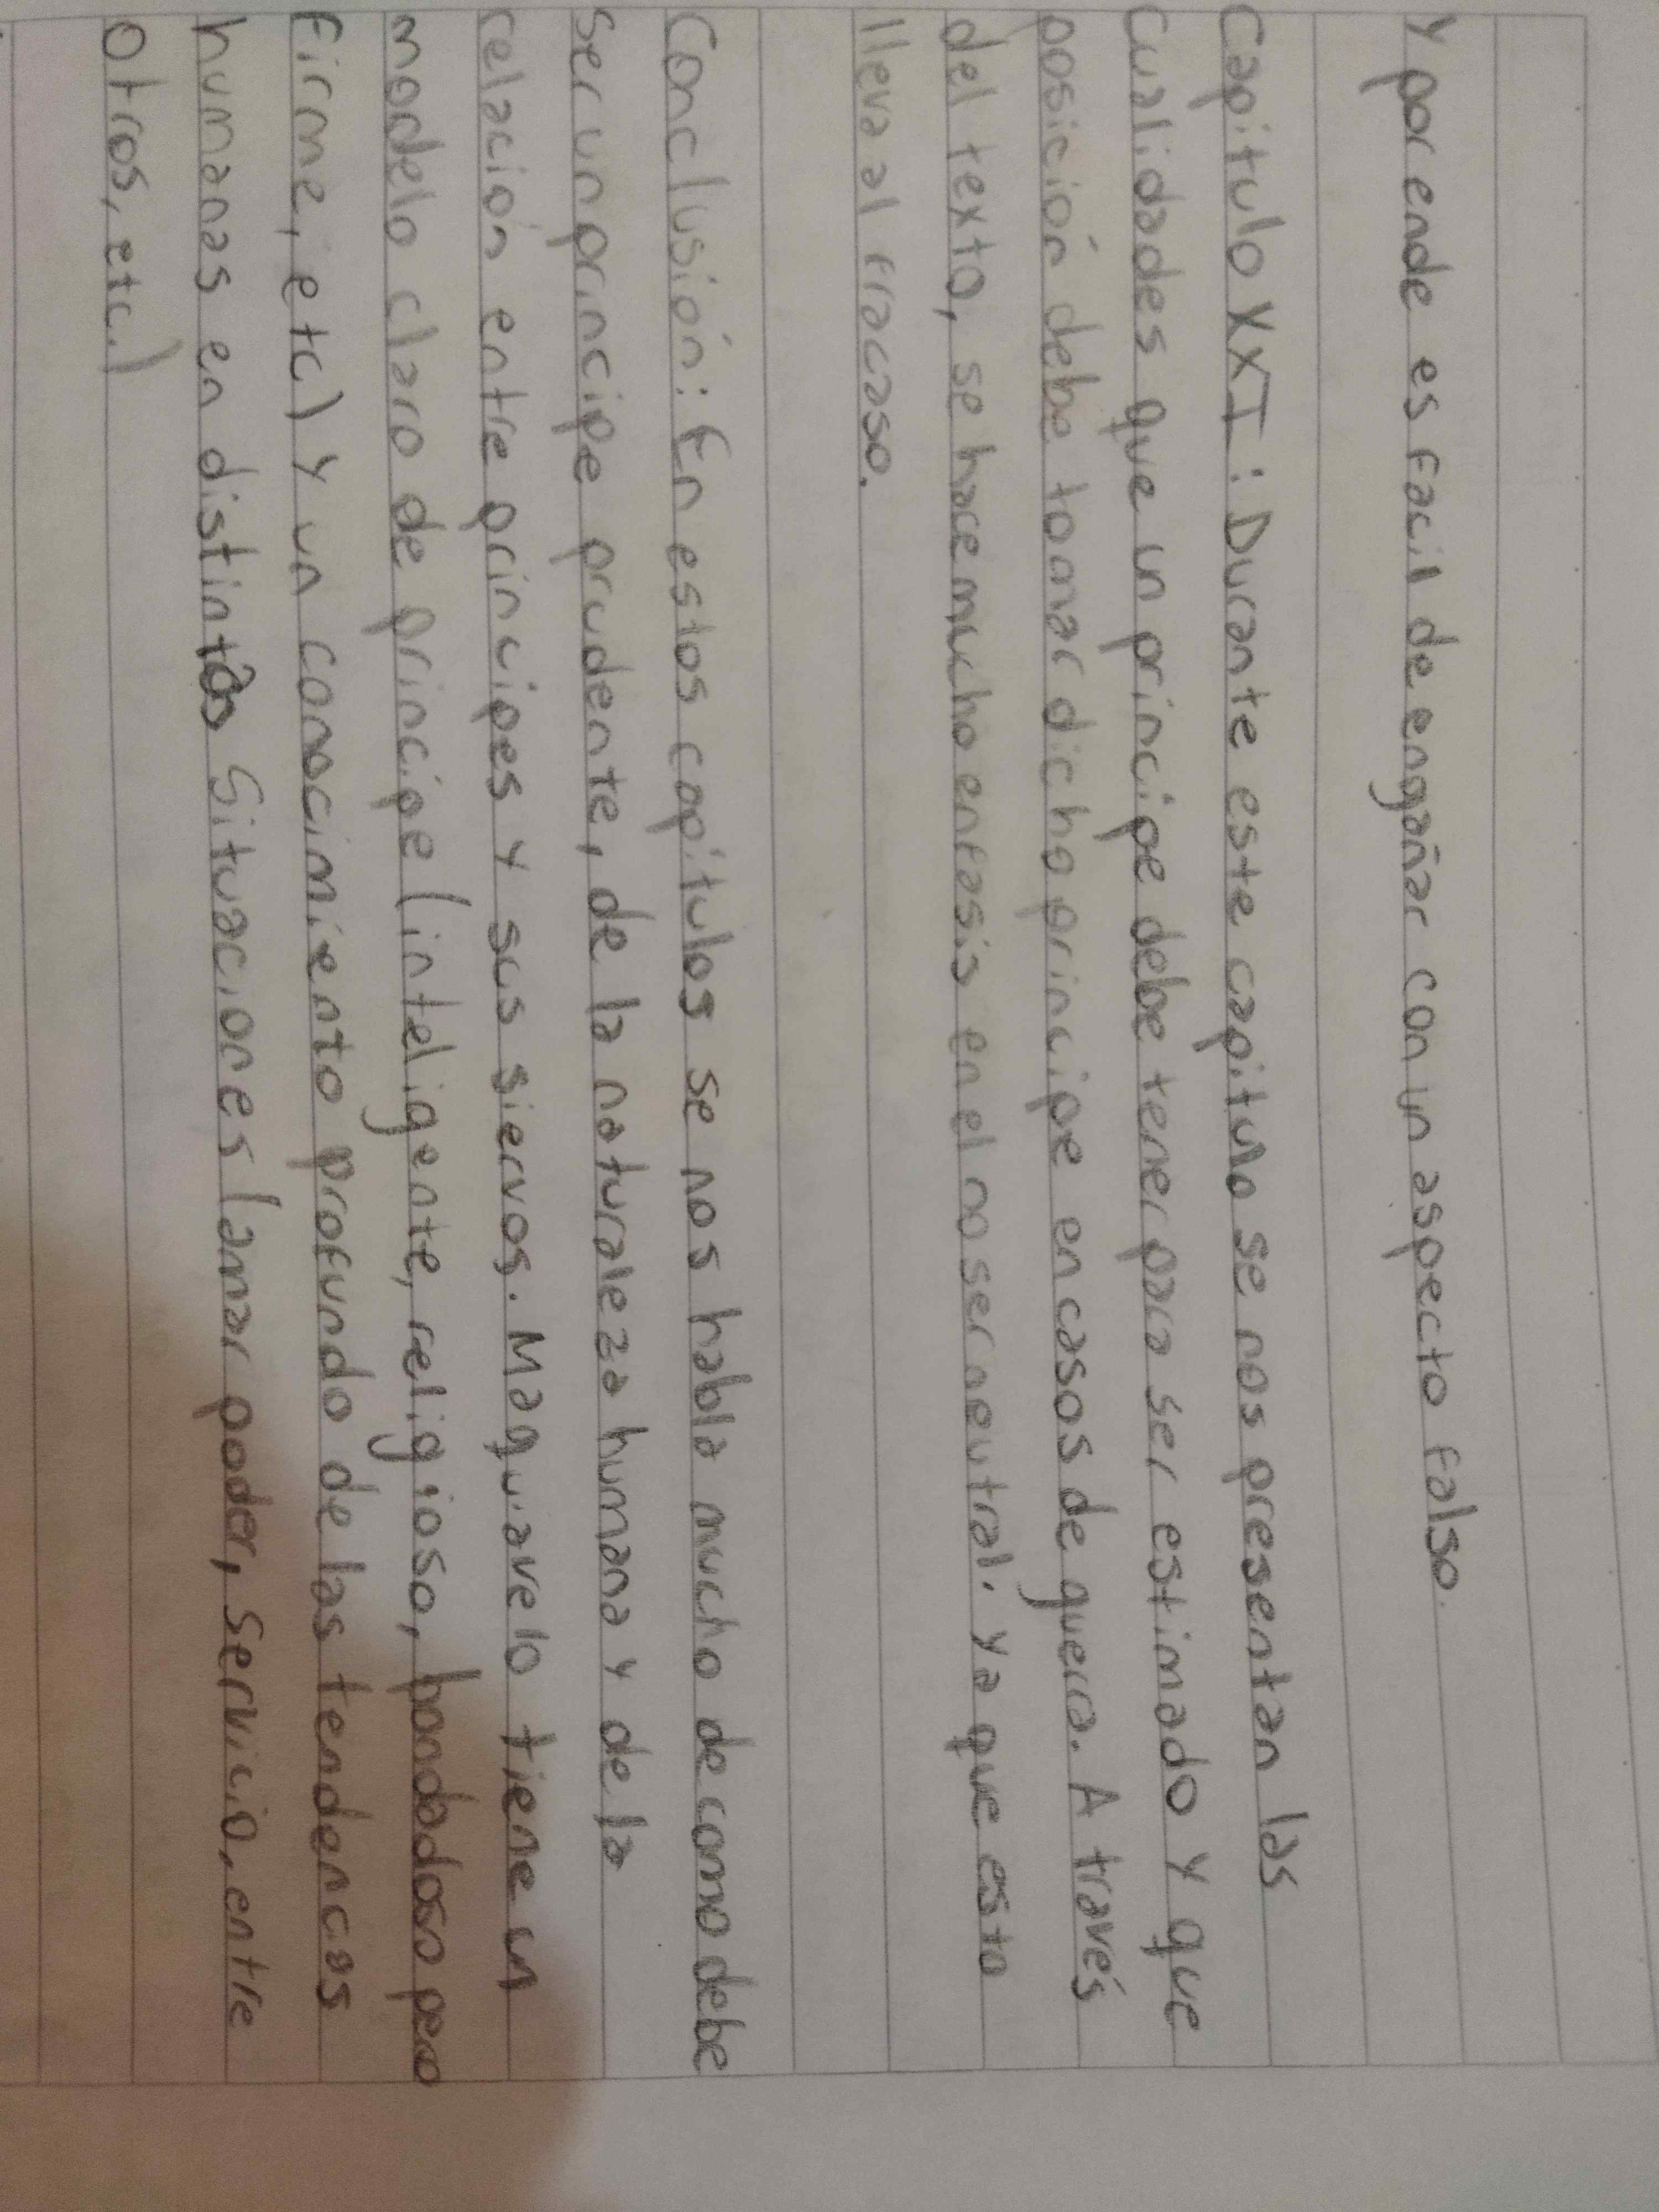 y por ende es facil de engañar con un aspecto falso.
Capitulo XXI: Durante este capitulo se nos presentan las
cualidades que un principe debe tener para ser estimado y que
posición debe tomar dicho principe en casos de guerra. A través
del texto, se hace mucho enfasis en el no ser neutral. Ya que esto
lleva al fracaso.
Conclusión: En estos capitulos se nos habla mucho de como debe
ser un principe prudente, de la naturaleza humana y de la
relación entre principes y sus siervos. Maquiavelo tiene un
modelo claro de principe (inteligente, religioso, bondadoso pero
firme, etc) y un conocimiento profundo de las tendencias
humanas en distintas situaciones (amar poder, servicio, entre
otros, etc.)